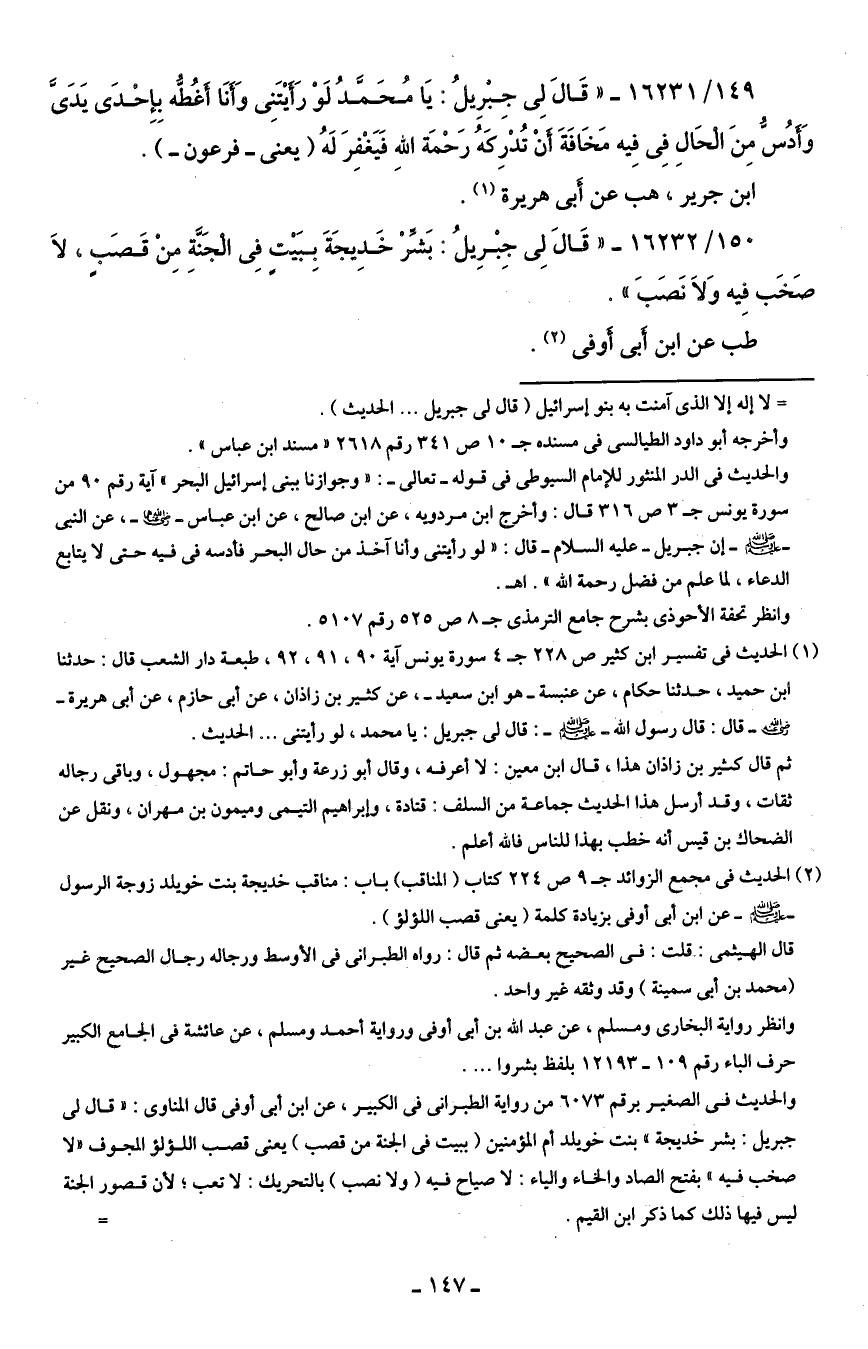 ١٤٩/ ١٦٢٣١ ـ « قَالَ لِى جِبْرِيلُ : يَا مُحَمَّدُ لَوْ رَأَيْتَنِى وَأَنَا أَغُطُّه بِإِحْدَى يَدَىَّ
وَأَدُسُّ مِنَ الْحَالِ فِى فِيه مَخَافَةَ أَنْ تُدْرِكَهُ رَحْمَة اللهِ فَيَغْفِرَ لَهُ ( يعنى ـ فرعون ـ ) .
ابن جرير ، هب عن أبى هريرة (١) .
١٥٠/ ١٦٢٣٢ ـ « قَالَ لِى جِبْرِيلُ : بَشِّرْ خَدِيجَةَ بِبَيْتٍ فِى الْجَنَّةِ مِنْ قَصَبٍ ، لاَ
صَخَب فِيه وَلاَ نَصَبَ » .
طب عن ابن أبى أوفى (٢) .
= لا إله إلا الذى آمنت به بنو إسرائيل ( قال لى جبريل ... الحديث ) .
وأخرجه أبو داود الطيالسى فى مسنده جـ ١٠ ص ٣٤١ رقم ٢٦١٨ « مسند ابن عباس » .
والحديث فى الدر المنثور للإمام السيوطى فى قوله ـ تعالى ـ : « وجوازنا ببنى إسرائيل البحر » آية رقم ٩٠ من
سورة يونس جـ ٣ ص ٣١٦ قال : وأخرج ابن مردويه ، عن ابن صالح ، عن ابن عباس ـ رضي الله عنهما ـ ، عن النبى
ـ ﷺ ـ إن جبريل ـ عليه السلام ـ قال : « لو رأيتنى وأنا آخذ من حال البحر فأدسه فى فيه حتى لا يتابع
الدعاء ، لما علم من فضل رحمة الله » . اهـ .
وانظر تحفة الأحوذى بشرح جامع الترمذى جـ ٨ ص ٥٢٥ رقم ٥١٠٧ .
(١) الحديث فى تفسير ابن كثير ص ٢٢٨ جـ ٤ سورة يونس آية ٩٠ ، ٩١ ، ٩٢ ، طبعة دار الشعب قال : حدثنا
ابن حميد ، حدثنا حكام ، عن عنبسة ـ هو ابن سعيد ـ ، عن كثير بن زاذان ، عن أبى حازم ، عن أبى هريرة ـ
رضي الله عنه ـ قال : قال رسول الله ـ ﷺ ـ : قال لى جبريل : يا محمد ، لو رأيتنى ... الحديث .
ثم قال كثير بن زاذان هذا ، قال ابن معين : لا أعرفه ، وقال أبو زرعة وأبو حاتم : مجهول ، وباقى رجاله
ثقات ، وقد أرسل هذا الحديث جماعة من السلف : قتادة ، وإبراهيم التيمى وميمون بن مهران ، ونقل عن
الضحاك بن قيس أنه خطب بهذا للناس فالله أعلم .
(٢) الحديث فى مجمع الزوائد جـ ٩ ص ٢٢٤ كتاب ( المناقب) باب : مناقب خديجة بنت خويلد زوجة الرسول
ـ ﷺ ـ عن ابن أبى أوفى بزيادة كلمة ( يعنى قصب اللؤلؤ ) .
قال الهيثمى : قلت : فى الصحيح بعضه ثم قال : رواه الطبرانى فى الأوسط ورجاله رجال الصحيح غير
(محمد بن أبى سمينة ) وقد وثقه غير واحد .
وانظر رواية البخارى ومسلم ، عن عبد الله بن أبى أوفى ورواية أحمد ومسلم ، عن عائشة فى الجامع الكبير
حرف الباء رقم ١٠٩ ـ ١٢١٩٣ بلفظ بشروا ... .
والحديث فى الصغير برقم ٦٠٧٣ من رواية الطبرانى فى الكبير ، عن ابن أبى أوفى قال المناوى : « قال لى
جبريل : بشر خديجة » بنت خويلد أم المؤمنين ( ببيت فى الجنة من قصب ) يعنى قصب اللؤلؤ المجوف «لا
صخب فيه » بفتح الصاد والخاء والباء : لا صياح فيه ( ولا نصب ) بالتحريك : لا تعب ؛ لأن قصور الجنة
ليس فيها ذلك كما ذكر ابن القيم . =
ـ ١٤٧ ـ